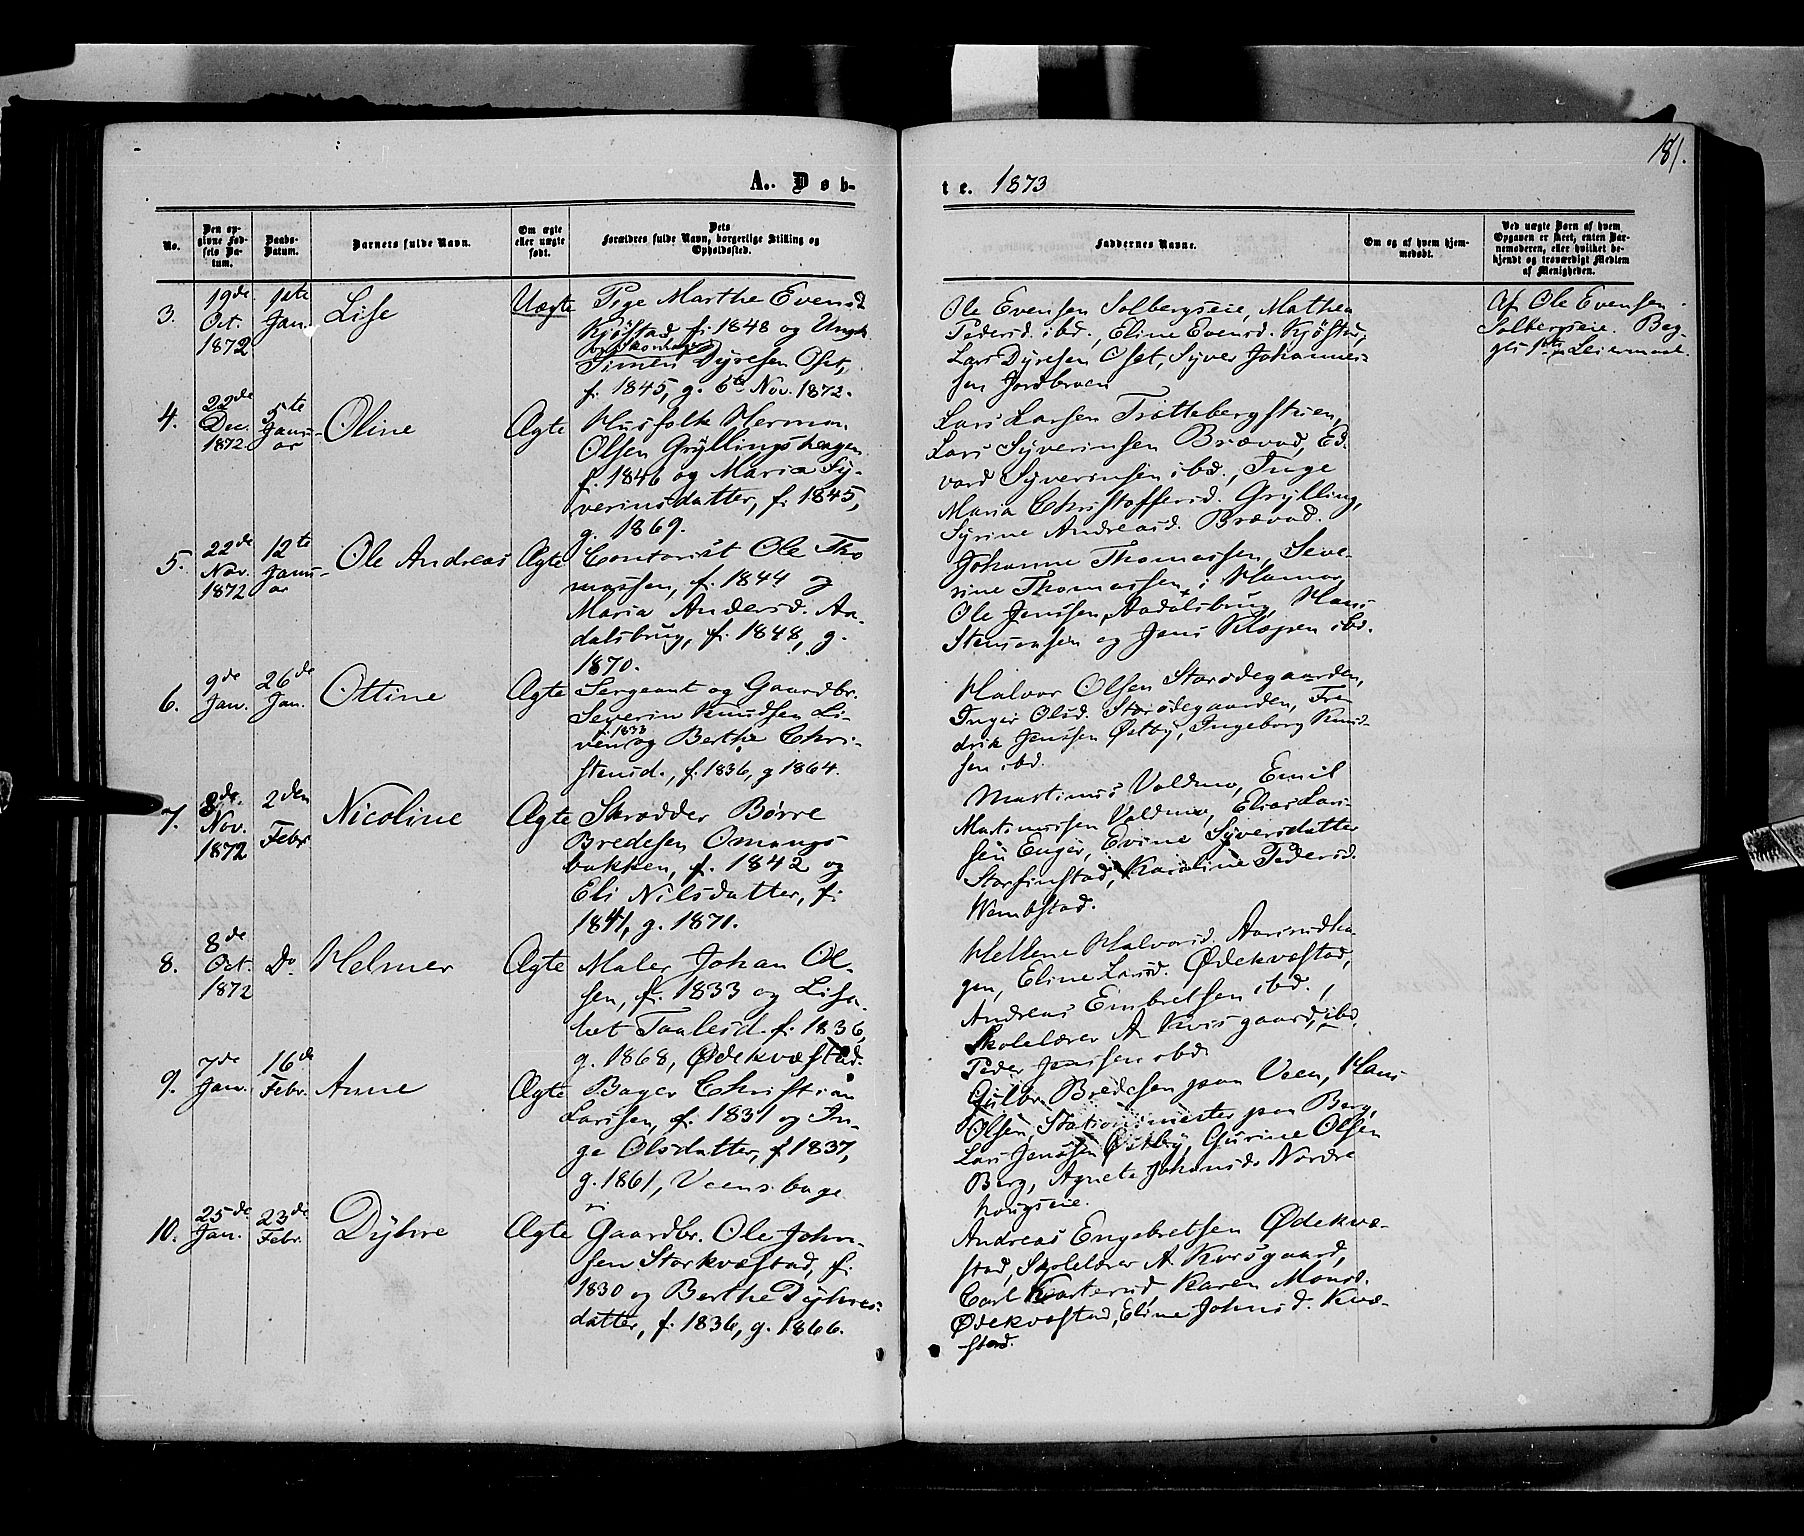 181.
A. Døb-
te. 1873
No.
Den op-
givne Fød-
sels Da-
tum.
Daabs-
Datum.
Barnets fulde Navn.
Om ægte
eller uægte
født.
Dets
Forældres fulde Navn, borgerlige Stilling og
Opholdssted.
Faddernes Navne.
Om og af hvem hjem-
medøbt.
Ved uægte Børn af hvem
Opgaven er skeet, enten Bar-
nemoderen, eller hvilket be-
kjendt og troværdigt Medlem
af Menigheden.
3.
19de
Oct.
1872
1ste
Jan.
Lise
Uægte
Pige Marthe Evensd
Kjöstad f. 1848 og Ungk.
Simen Dyresen Oset,
f. 1845, g. 6te Nov. 1872.
Ole Evensen Solbergseie, Mathea
Pedersd. ibd., Eline Evensd. Kjöstad,
Lars Dyresen Oset, Syver Johannes-
sen Jordbroen
Af Ole Evensen
Solbergseie. Beg-
ges 1ste Leiermaal.
4.
22de
Dec.
1872
5te
Janu-
ar
Oline
Ægte
Husfolk Herman
Olsen Gryllingshagen
f. 1846 og Maria Sy-
verinsdatter, f. 1845,
g. 1869.
Lars Larsen Trøttebergstuen,
Lars Syverinsen Brævad, Ed-
vard Syverinsen ibd., Inge
Maria Christoffersd. Grylling,
Syrine Andreasd. Brævad.
5.
22de
Nov.
1872
12te
Janu-
ar
Ole Andreas
Ægte
Contorist Ole Tho
massen, f. 1844 og
Maria Andersd. Aa-
dalsbrug, f. 1848, g.
1870.
Johanne Thomassen, Seve-
rine Thomassen, i Hamar,
Ole Jenssen, Aadalsbrug, Hans
Stensensen og Jens Klæpen ibd.
6.
9de
Jan.
26de
Jan.
Ottine
Ægte
Sergeant og Gaardbr.
Severin Knudsen Li-
f. 1833
ven og Berthe Chri-
stensd., f. 1836, g 1864.
Halvor Olsen Storødegaarden,
Inger Olsd. Storødegaarden, Fre-
drik Jenssen Østby, Ingeborg Knud-
sen ibd.
7.
8de
Nov.
1872
2den
Febr
Nicoline
Ægte
Skrædder Børre
Bredesen Omangs
bakken, f. 1842 og
Eli Nilsdatter, f.
1841, g. 1871.
Martinus Voldmo, Emil
Martinussen Voldmo, Elias Lar-
sen Enger, Evine Syversdatter
Storfinstad, Karoline Pedersd.
Wembstad.
8.
8de
Oct.
1872
Do
Helmer
Ægte
Maler Johan Ol-
sen, f. 1833 og Lisa-
bet Taalesd. f. 1836,
g. 1868, Ødekvæstad.
Hellene Halvorsd. Aarsrudha-
gen, Eline Larsd. Ødekvæstad,
Andreas Embretsen ibd.,
Skolelærer A. Kvisgaard, ibd.
Peder Jenssen ibd.
9.
7de
Jan.
16de
Febr.
Anne
Ægte
Bager Christian
Larssen, f. 1831 og In-
ge Olsdatter, f 1837,
g. 1861, Veensbage
ri
Gulbr. Bredesen paa Veen, Hans
Olsen, Stationsmester paa Berg,
Lars Jenssen Østby, Gurine Olsen
Berg, Agnete Johansd. Nordre
haugseie.
10.
25de
Jan.
23de
Febr.
Dyhre
Ægte
Gaardbr. Ole John-
sen Storkvæstad, f.
1830 og Berthe Dyhres-
datter, f. 1836, g. 1866.
Andreas Engebretsen Ødekvæ-
stad, Skolelærer A. Kvisgaard,
Carl Kvarterud, Karen Monsd.
Ødekvæstad, Eline Johnsd. Kvæ-
stad.